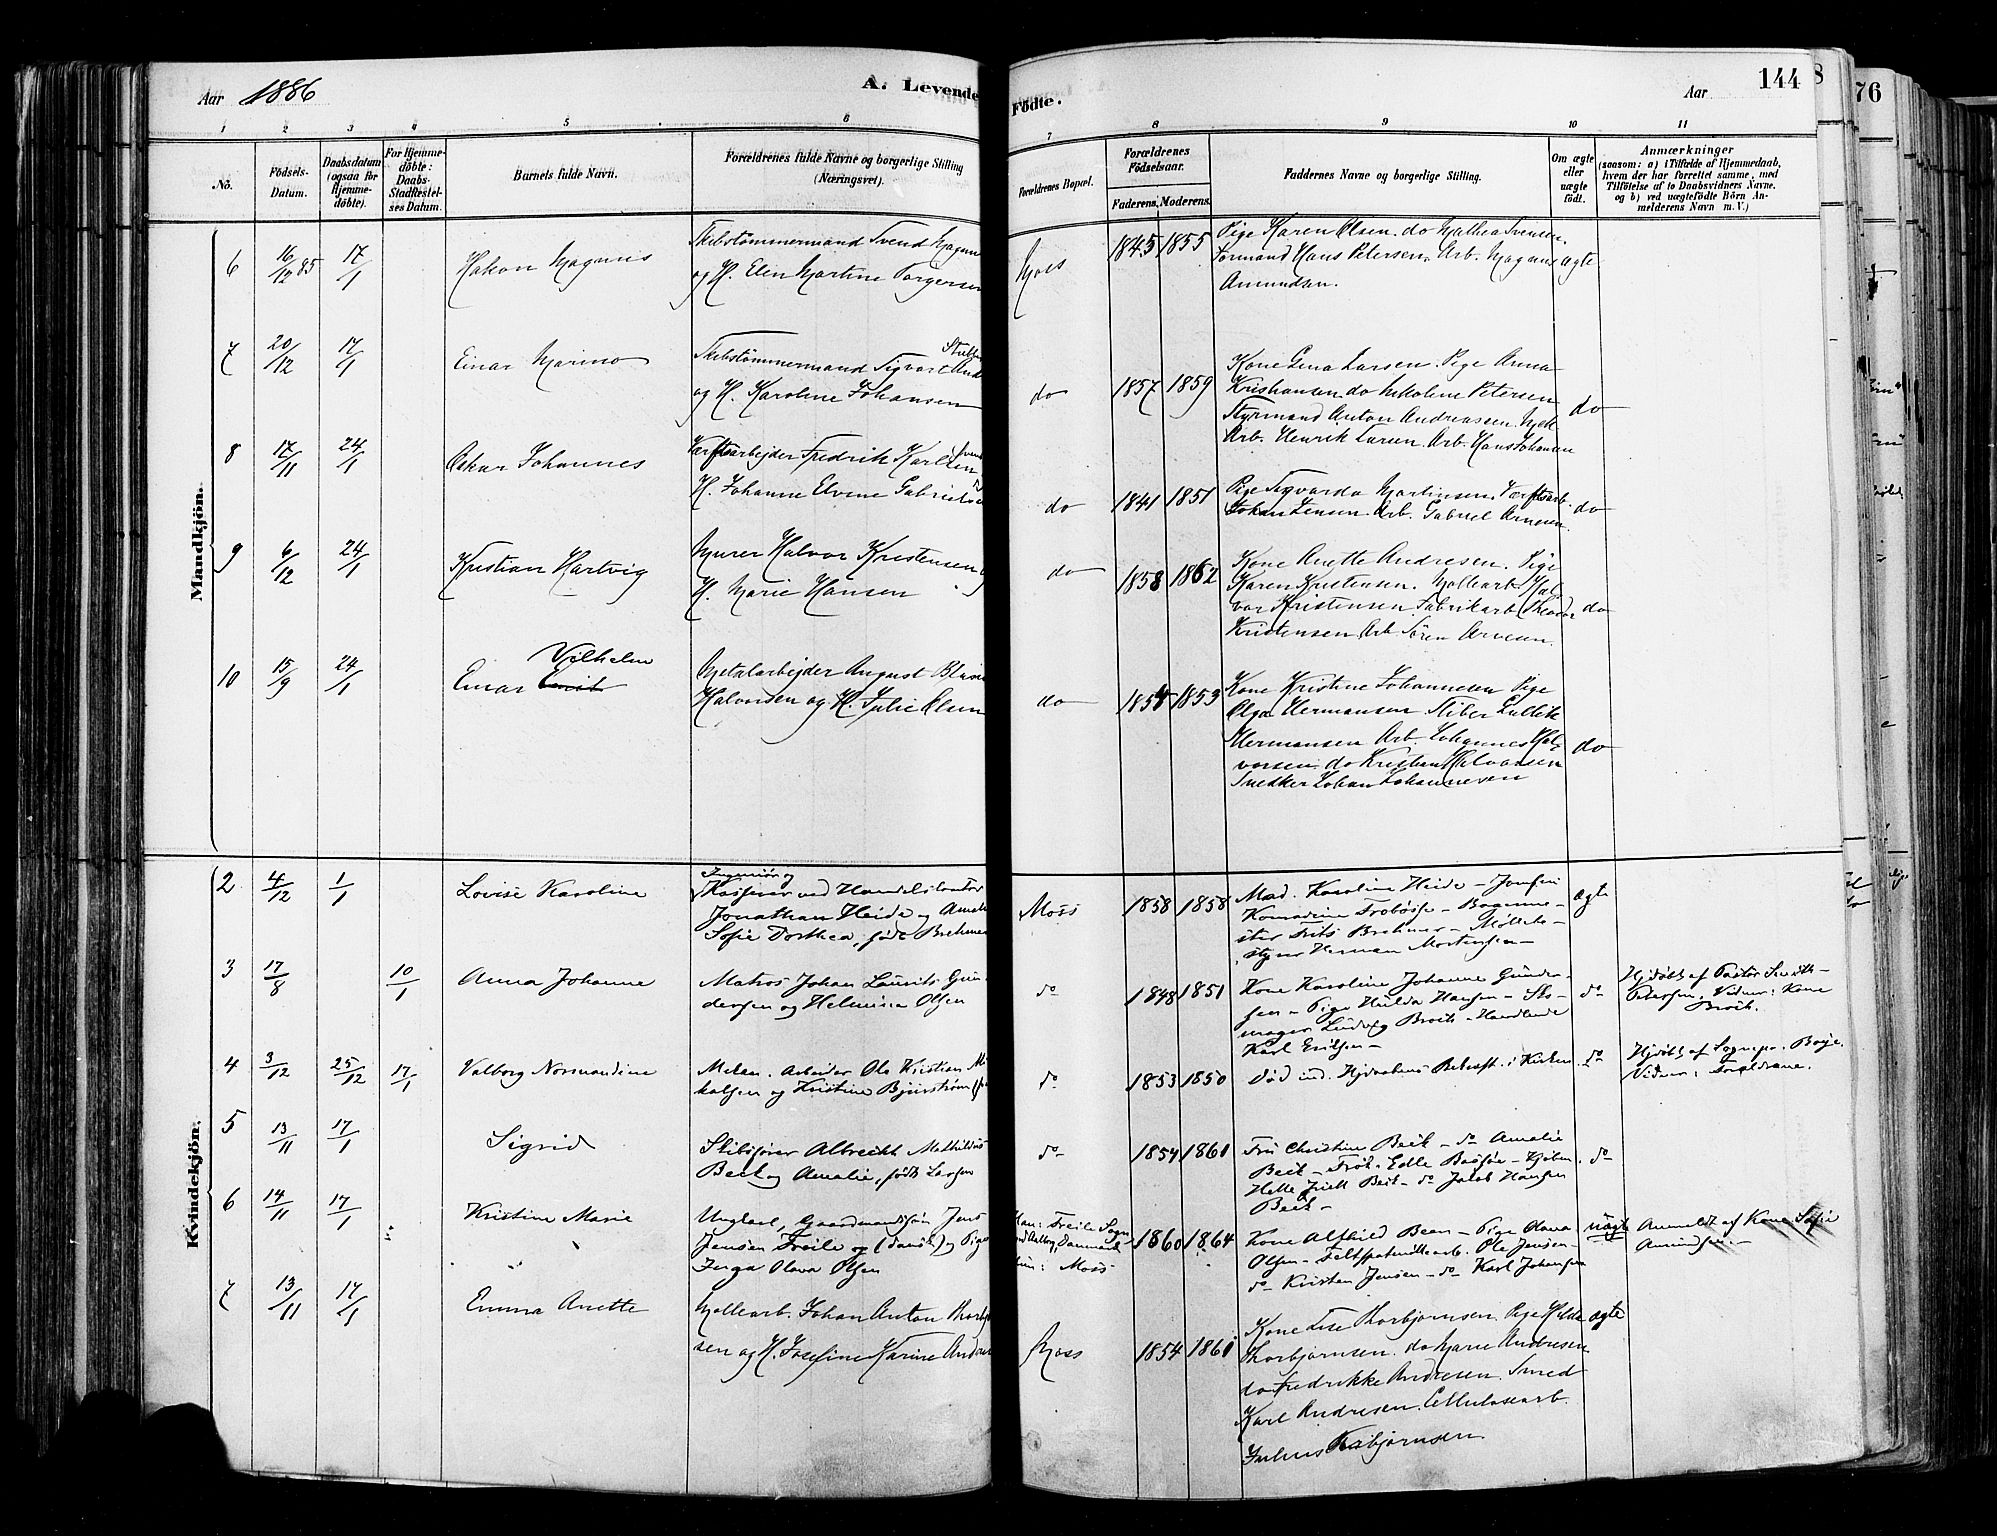 Aar 1886
A. Levende
Födte.
Aar
144
8
76
1 2 3 4 5 6 7 8 9 10 11
No.
Födsels-
Datum.
Daabsdatum
(ogsaa for
Hjemme-
döbte).
For Hjemme-
döbte:
Daabs-
Stadfæstel-
ses Datum.
Barnets fulde Navn.
Forældrenes fulde Navne og borgerlige Stilling
(Næringsvei).
Forældrenes Bopæl.
Forældrenes
Födselsaar.
Faderens. Moderens.
Faddernes Navne og borgerlige Stilling.
Om ægte
eller
uægte
født.
Anmærkninger
(saasom: a) i Tilfælde af Hjemmedaab,
hvem der har forrettet samme, med
Tilföielse af to Daabsvidners Navne.
og b) ved uægtefödte Börn An-
melderens Navn m. V.)
Mandkjön.
6 16/12 85 17/1 Hakon Magnus
Skibstömmermand Svend Magnus
og H. Elen Martine Torgersen
Moss 1845 1855
Pige Karen Olsen. do Mathea Svensen.
Formand Hans Petersen. Arb. Magnus
Amundsen.
ægte
7 20/12 17/1 Einar Marino
Skibstömmermand Sigvart
og H. Karoline Johansen
do 1857 1859
Kone Gina Larsen. Pige Anna
Kristiansen do Nikoline Petersen
Styrmand Anton Andreassen.
Arb. Henrik Larsen. Arb. Hans Johansen
do
8 17/11 24/1 Oskar Johannes
Værftsarbejder Fredrik Karlsen
H. Johanne Elvine Gabrielse
do 1841 1851
Pige Sigvarda Martinsen. Værftsarb.
Johan Jensen. Arb. Gabriel Arnesen.
do
9 6/12 24/1 Kristian Hartvig
Murer Halvor Kristensen
H. Marie Hansen
do 1858 1862
Kone Anette Andresen. Pige
Karen Kristensen. Møllearb. Hal-
vor Kristensen. Fabrikarb. Theodor
Kristensen Arb. Sören Arnesen.
do
10 15/9 24/1 Einar Vilhelm
Metalarbejder August
Halvorsen og H. Julie Olsen
do 1854 1853
Kone Kristine Johannesen Pige
Olga Hermansen. Stiber Ludvik
Hermansen Arb. Johannes Hal-
vorsen do Kristian Halvorsen
Snedker Johan Johannesen
do
Kvindekjön.
2 4/12 1/1 Lovise Karoline
Ingeniør og
Kasserer ved Handelskontor
Jonathan Heide og
Sofie Dorthea, født Brehmer
Moss 1858 1858
Mad. Karoline Heide – Jomfru
Konradine Froböse – Bogerme-
ster Frits Brehmer – Møllebe-
styrer Herman Mortensen –
ægte
3 17/8 10/1 Anna Johanne
Matros Johan Laurits Gun-
dersen og Helmine Olsen
do 1848 1851
Kone Karoline Johanne Gunder-
sen – Pige Hulda Hansen – Sko-
mager Ludvig Broch – Handlende
Karl Eriksen –
do
Hjdöbt af Pastor Smith-
Petersen. Vidner: Kone
Broch.
4 3/12 25/12 17/1 Valborg Normandine
Mekan. Arbeider Ole Kristian Mi-
kalsen og Kristine Bjurström
do 1853 1850
Död ind. Hjdaabens Bekræft. i Kirken
do
Hjdöbt af Sognepr. Boije.
Vidner: Forældrene.
5 13/11 17/1 Sigrid
Skibsfører Albrecht Mathildus
Beck og Amalie, født Larsen
do 1854 1861
Fru Christine Beck – do Amalie
Beck – Frøk. Edle Bassøe – Kjöbm.
Helle Juell Beck – do Jacob Hansen
Beck –
do
6 14/11 17/1 Kristine Marie
Ungkarl, Gaardmandssøn Jens
Jensen Freile og (dansk) og Pige
Inga Olava Olsen
Han: Freile Sogn
ved Aalborg, Danmark
Hun: Moss 1860 1864
Kone Alfhild Been – Pige Olava
Olsen – Feltspatmöllearb. Ole Jensen –
do Kristen Jensen – do Karl Johansen
uægte
Anmeldt af Kone Sofie
Amundsen. –
7 13/11 17/1 Emma Anette
Møllearb. Johan Anton Thorbj
sen og H. Josefine Karine Andre
Moss 1854 1861
Kone Lise Thorbjørnsen. Pige Hilda
Thorbjørnsen. do Marie Andresen
do Fredrikke Andresen. Smed
Karl Andresen. Cellulosearb.
Julius Torbjørnsen.
ægte